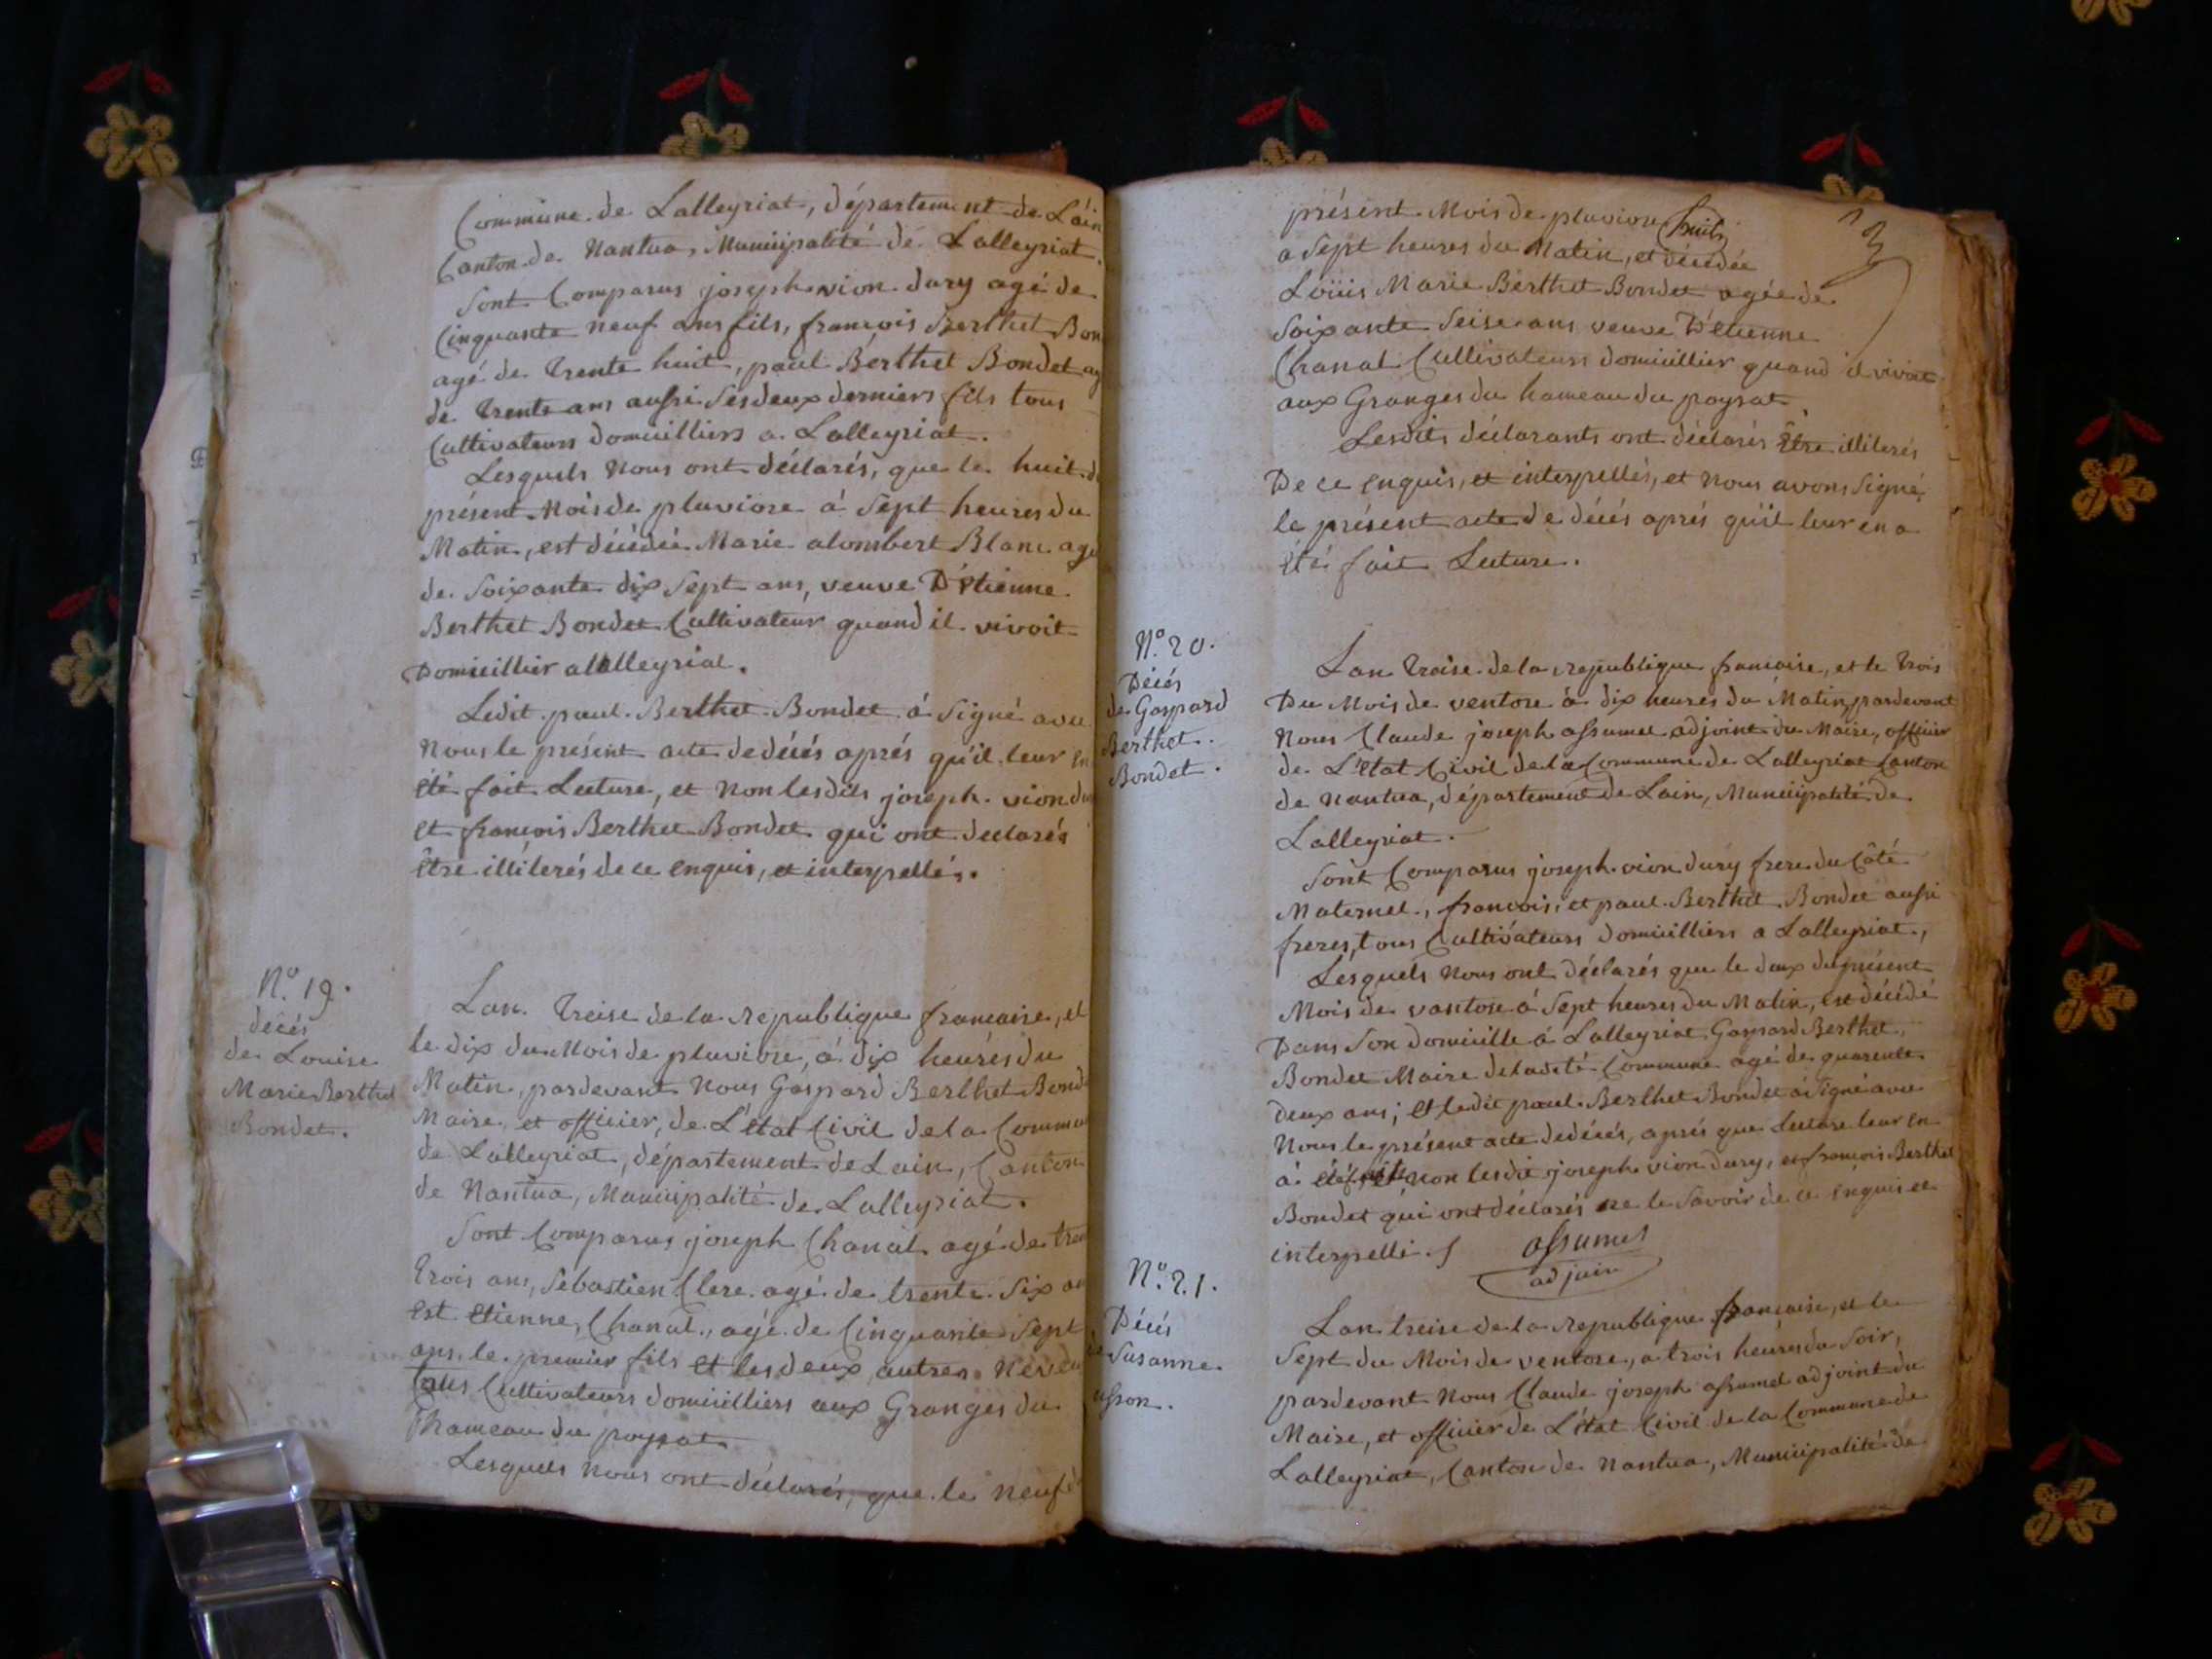 Commune de Lalleyriat, département de Láin
Canton de Nantua, Municipalité de Lalleyriat.
Sont Comparus joseph vion dury agé de
Cinquante neuf ans fils, francois Berthet Bon
agé de trente huit, paul Berthet Bondet ag
de trente ans aussi Ses deux derniers fils tous
Cultivateurs domicilliers a Lalleyriat.
Lesquels Nous ont déclarés, que le huit d
présent Mois de pluviose à Sept heures du
Matin, est décédée Marie alombert Blanc agé
de Soixante dix Sept ans, veuve D'étienne
Berthet Bondet Cultivateur quand il vivoit
Domicillier a lalleyriat.
Ledit paul Berthet Bondet á Signé avec
Nous le présent acte de décés aprés qu'il leur en
été fait Lecture, et Non lesdits joseph vion du
et francois Berthet Bondet qui ont declarés
être illiterés de ce enquis, et interpellés.
N.º 19.
décés
de Louise
Marie Berthet
Bondet.
Lan treise de la republique francaise, et
le dix du Mois de pluviose, á dix heures du
Matin, pardevant Nous Gaspard Berthet Bond
Maire, et officier, de L'état Civil de la Commu
de Lalleyriat, département de Lain, Canton
de Nantua, Municipalité de Lalleyriat.
Sont Comparus joseph Chanal agé de tren
trois ans, Sebastien Clerc agé de trente Six an
est etienne, Chanal, agé de Cinquante Sept
ans, le premier fils et les deux autres Neveu
tous Cultivateurs domicilliers aux Granges du
hameau du poysat
Lesquels Nous ont déclarés, que le neuf d
présent Mois de pluviose (huit)
a Sept heures du Matin, et décédée
Loüis Marie Berthet Bondet agée de
Soixante Seise ans veuve D'étienne
Chanal Cultivateurs domicillier quand il vivoit
aux Granges du hameau du poysat
Lesdits déclarants ont déclarés être illiterés
De ce enquis, et interpellés, et Nous avons Signé
le présent acte de décés aprés qu'il leur en a
été fait Lecture.
N.º 20.
Décés
de Gaspard
Berthet
Bondet.
Lan treise de la republique francaise, et le trois
Du Mois de ventose á dix heures du Matin, pardevant
Nous Claude joseph assumel adjoint du Maire, officier
de L'état Civil de la Commune de Lalleyriat Canton
de Nantua, département de Lain, Municipalité de
Lalleyriat.
Sont Comparus joseph vion dury frere du Côté
Maternel, francois, et paul Berthet Bondet aussi
freres, tous Cultivateurs domicilliers a Lalleyriat,
Lesquels Nous ont déclarés que le deux du présent
Mois de vantose á Sept heures du Matin, est décédé
Dans Son domicille á Lalleyriat Gaspard Berthet
Bondet Maire de ladité Commune agé de quarente
deux ans; et ledit paul Berthet Bondet á Signé avec
Nous le présent acte de décés, aprés que Lecture leur en
á été faite non lesdit joseph vion dury, et francois Berthet
Bondet qui ont déclarés ne le Savoir de ce enquis et
interpellé.
assumel
adjoin
N.º 21.
Décés
de Susanne
Lan treise de la republique francaise, et le
Sept du Mois de ventose, á trois heures du Soir,
pardevant Nous Claude joseph assumel adjoint du
Maire, et officier de L'état Civil de la Commune de
Lalleyriat, Canton de Nantua, Municipalité de